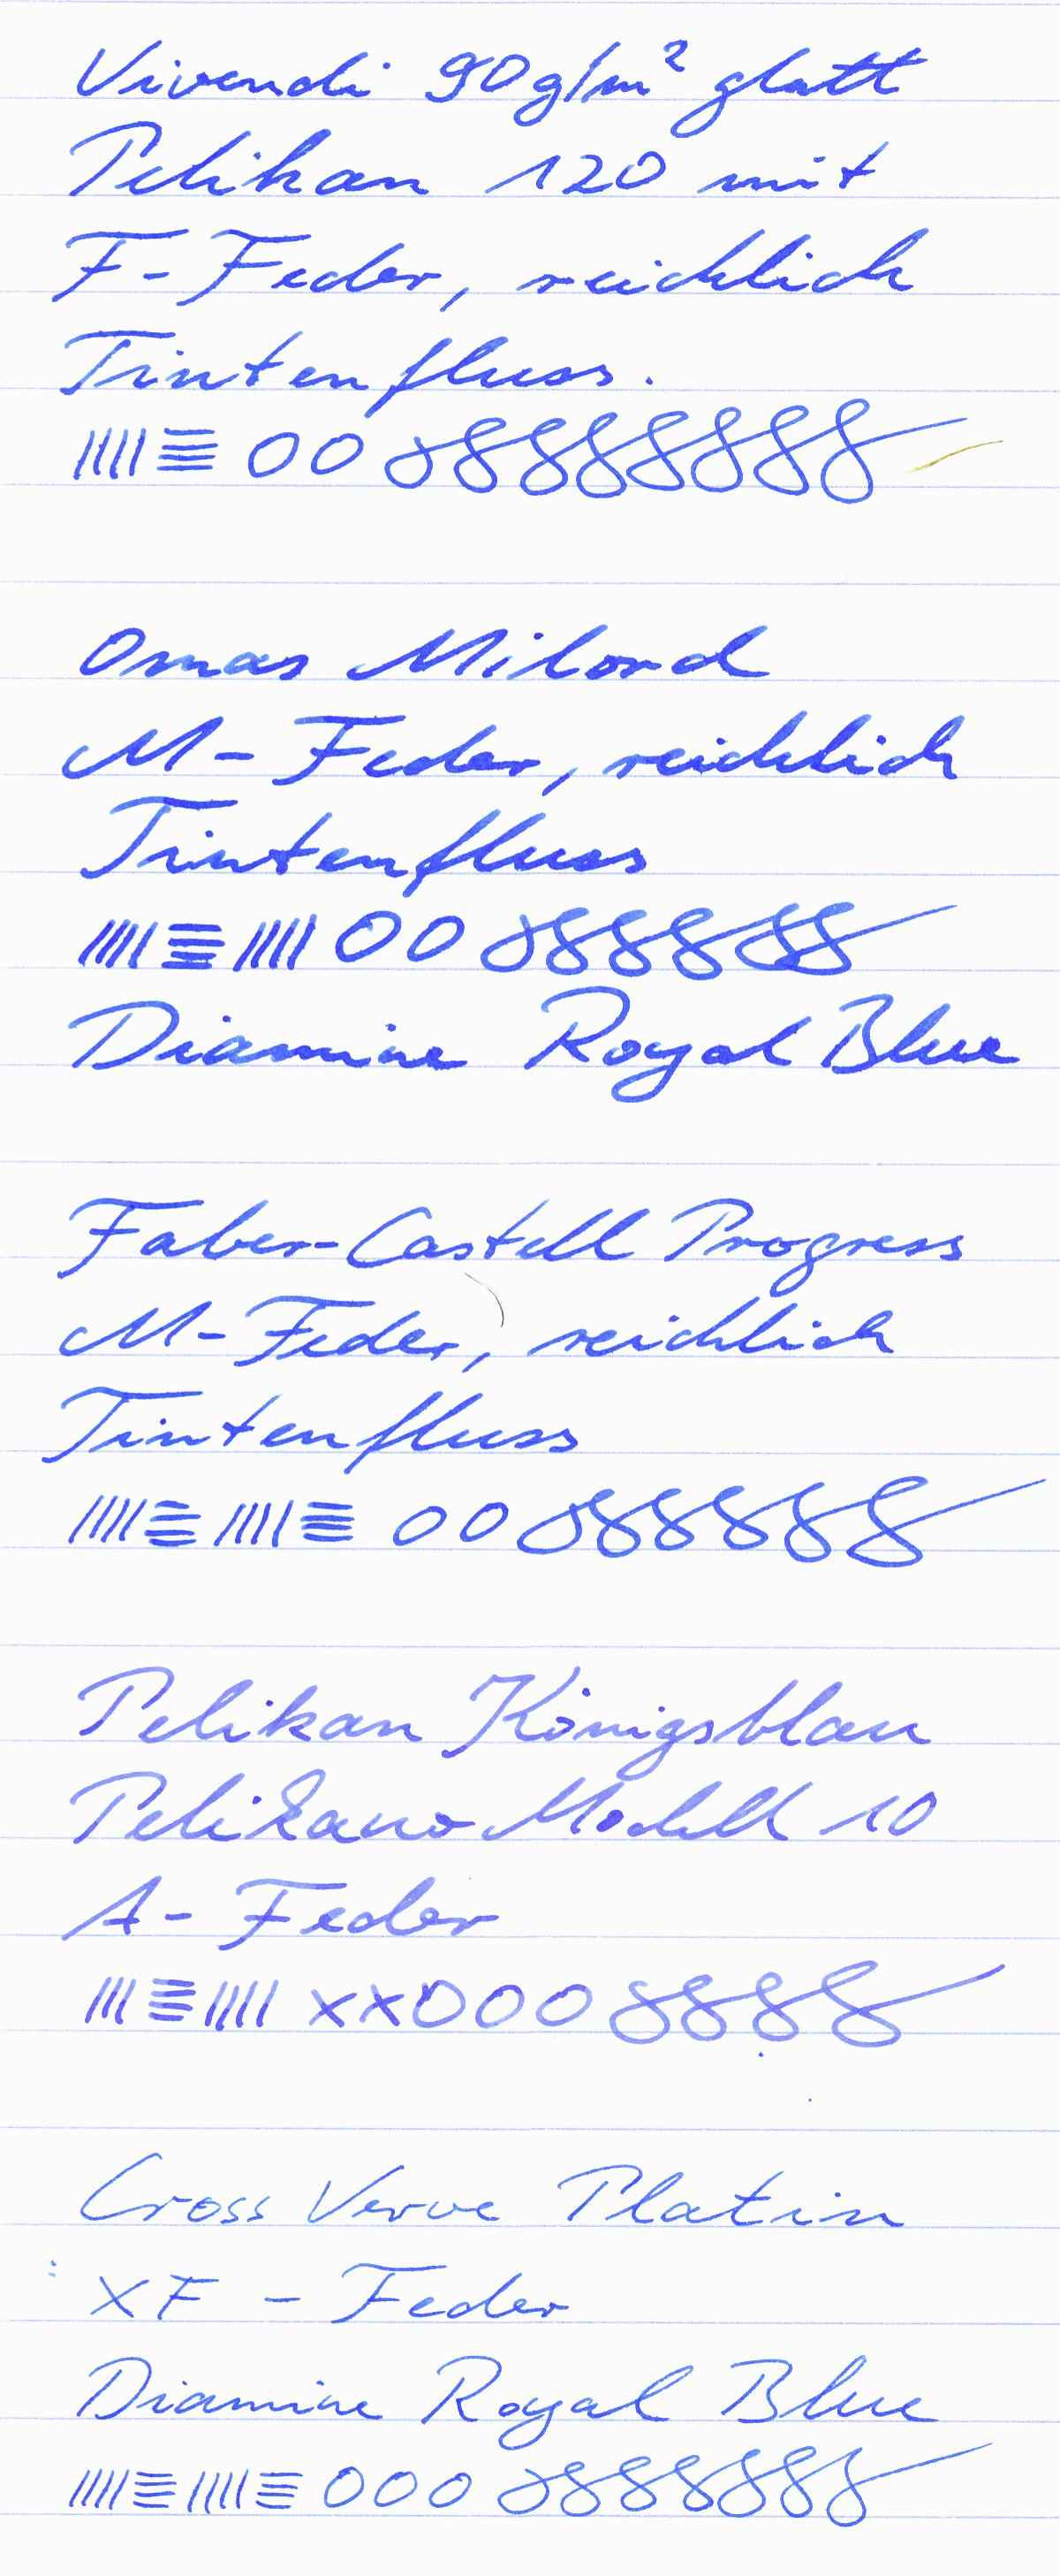 Vivendi 90g/m² glatt
Pelikan 120 mit
F-Feder, reichlich
Tintenfluss.
Omas Milord
M-Feder, reichlich
Tintenfluss
Diamine Royal Blue
Faber-Castell Progress
M-Feder, reichlich
Tintenfluss
Pelikan Königsblau
Pelikano Modell 10
A-Feder
xx
Cross Verve Platin
XF - Feder
Diamine Royal Blue